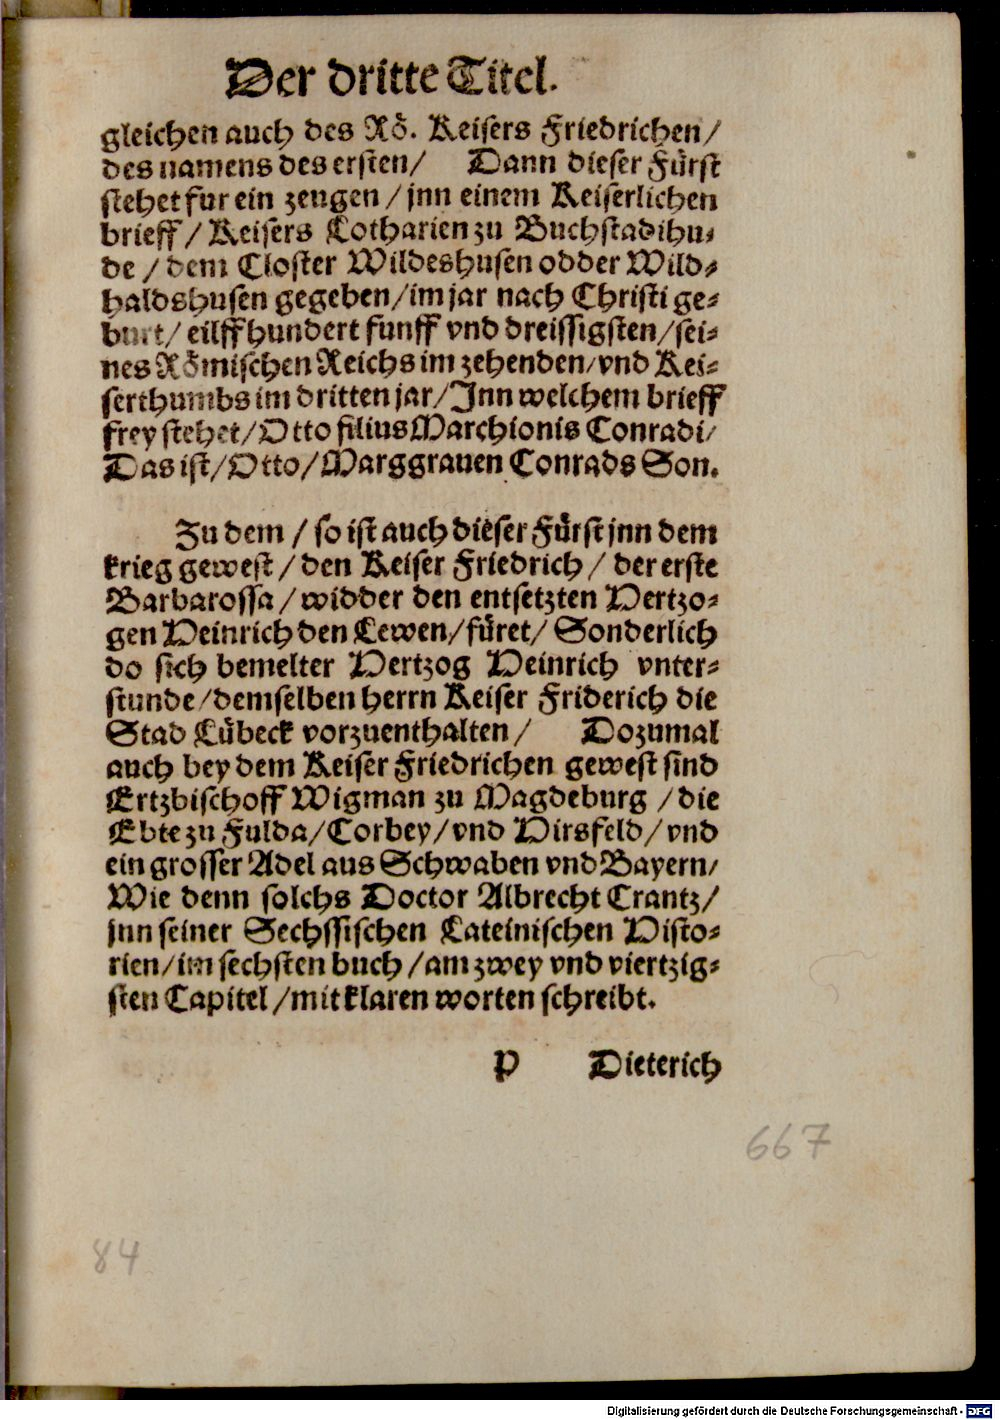 Der dritte Titel.
gleichen auch des Rö. Keisers Friedrichen/
des namens des ersten/ Dann dieser Fürst
stehet fur ein zeugen / jnn einem Keiserlichen
brieff / Keisers Lotharien zu Buchstadihu⸗
de / dem Closter Wildeshusen odder Wild⸗
haldshusen gegeben / im jar nach Christi ge⸗
burt / eilff hundert funff vnd dreissigsten / sei⸗
nes Römischen Reichs im zehenden / vnd Kei⸗
serthumbs im dritten jar / Jnn welchem brieff
frey stehet / Otto filius Marchionis Conradi /
Das ist / Otto / Marggrauen Conrads Son.
Zu dem / so ist auch dieser Fürst jnn dem
krieg gewest / den Keiser Friedrich / der erste
Barbarossa / widder den entsetzten Hertzo⸗
gen Heinrich den Lewen / füret / Sonderlich
do sich bemelter Hertzog Heinrich vnter⸗
stunde / demselben herrn Keiser Friderich die
Stad Lübeck vorzuenthalten / Dozumal
auch bey dem Keiser Friedrichen gewest sind
Ertzbischoff Wigman zu Magdeburg / die
Ebte zu Fulda / Corbey / vnd Hirsfeld / vnd
ein grosser Adel aus Schwaben vnd Bayern /
Wie denn solchs Doctor Albrecht Crantz /
jnn seiner Sechssischen Lateinischen Histo⸗
rien / im sechsten buch / am zwey vnd viertzig⸗
sten Capitel / mit klaren worten schreibt.
P Dieterich
667
84
Digitalisierung gefördert durch die Deutsche Forschungsgemeinschaft - DFG